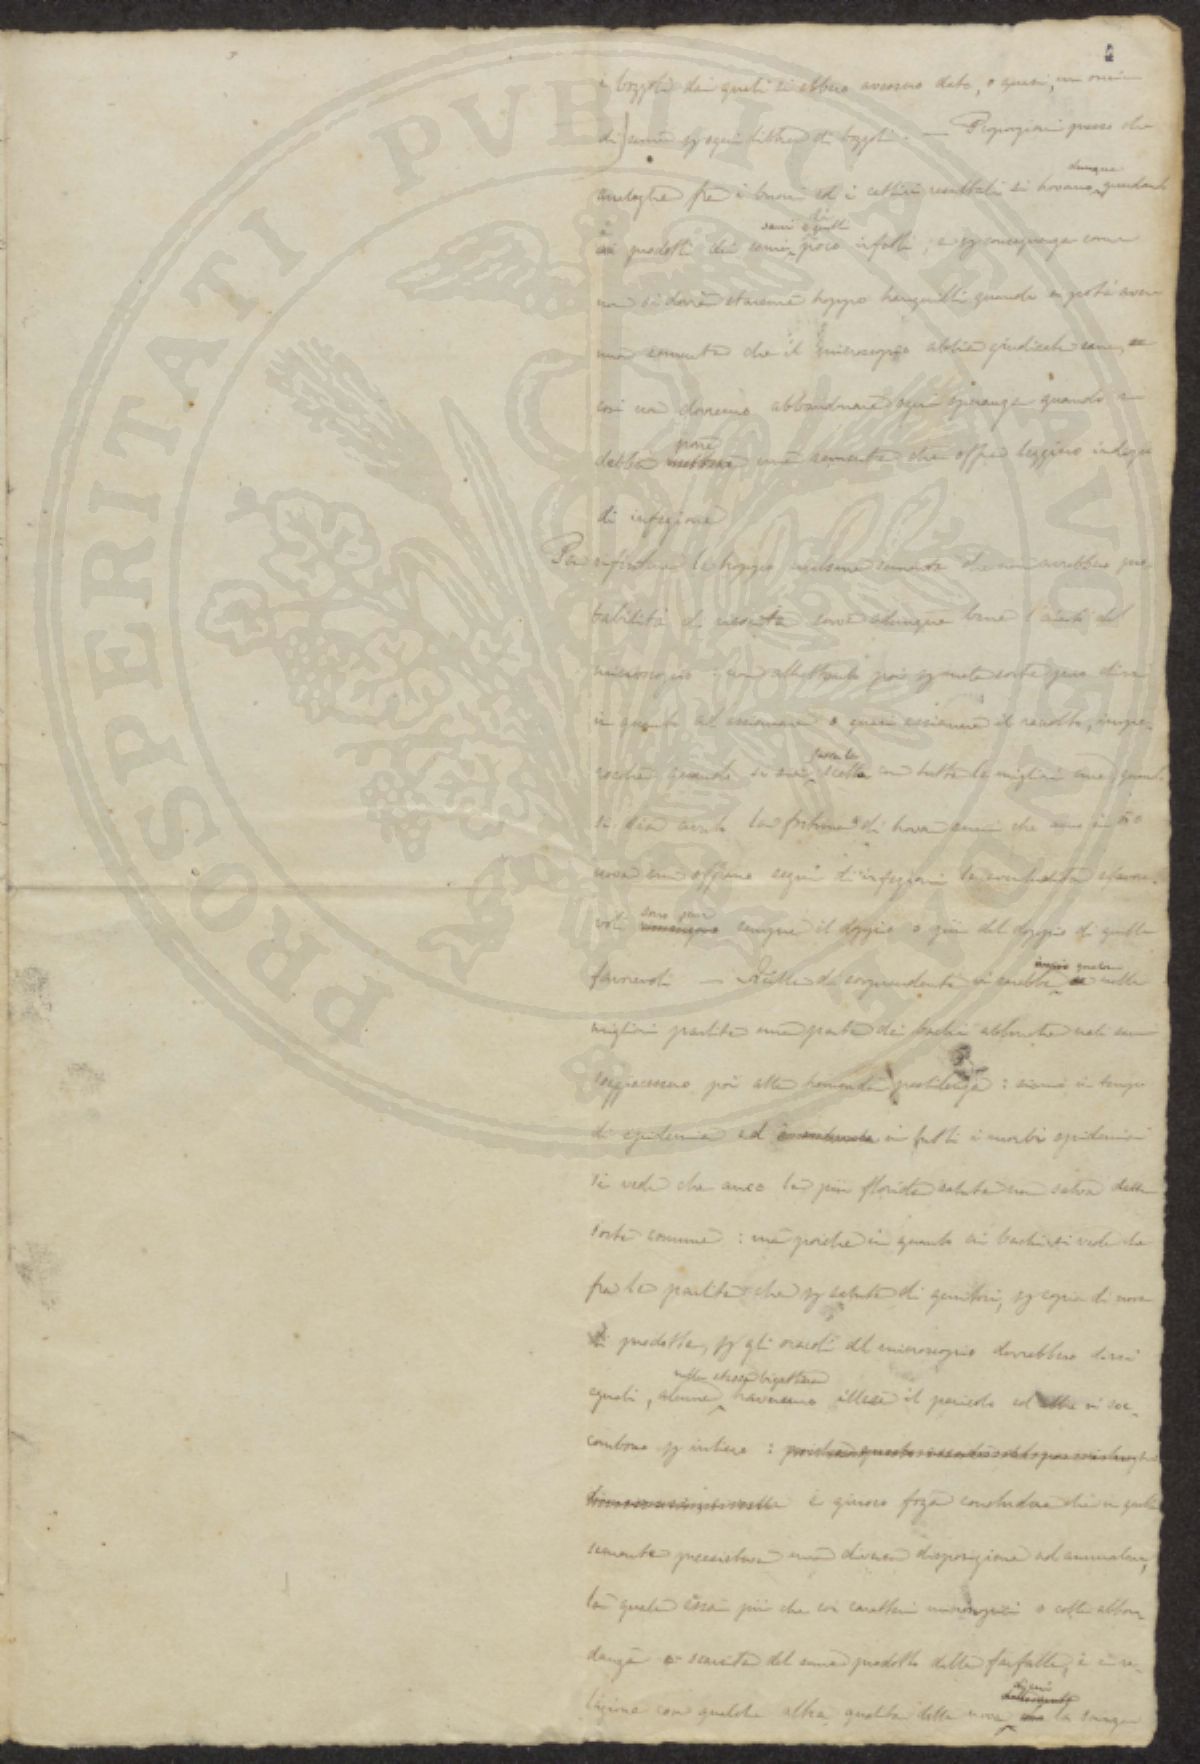 i bozzoli dai quali si ebbero avessero dato, o quasi, un oncia
di seme per ogni libbra di bozzoli. — Proporzioni presso che
analoghe fra i buoni ed i cattivi resultati si trovano dunque guardando
ai prodotti dei semi sani e quelli di poco infetti; e per conseguenza come
non si dovrà starsene troppo tranquilli quando si potè avere
una semente che il microscopio abbia giudicata sana,
così non dovremo abbandonare ogni speranza quando si
debba porre una semente che offra leggiero indizio
di infezione
Per rifiutare le troppo malsane sementi che non avrebbero pro-
babilità di riescita serve adunque bene l'aiuto del
microscopio: non altrettanto poi per mala sorte può dirsi
in quanto ad assicurare o quasi assicurare il raccolto, impe-
rocchè quando si sia fatta la scelta con tutte le migliori cure, quando
si sia avuta la fortuna di trovar semi che
uova non offrano segni di infezioni le eventualità sfavore-
voli sono pure sempre il doppio o più del doppio di quelle
favorevoli — Nulla di sorprendente vi sarebbe nelle
migliori partite una parte dei bachi abbenchè nati sani
soggiacessero poi alla tremenda pestilenza: siamo in tempo
di epidemia ed in tutti i morbi epidemici
si vede che anco la più florida salute non salva dalla
sorte comune: ma poichè in quanto ai bachi si vede che
fra le partite che per salute di genitori, per copia di uova
prodotte, per gli oracoli del microscopio dovrebbero dirsi
eguali, alcune nella stessa bigattiera traversano illese il pericolo ed altre vi soc-
combono per intiero:
è giuoco forza concludere che in quelle
semente preesisteva una diversa disposizione ad ammalare,
la quale assai più che coi caratteri microscopici o colla abbon-
danza o scarsità del seme prodotto dalle farfalle, è in re-
lazione con qualche altra qualità delle uova